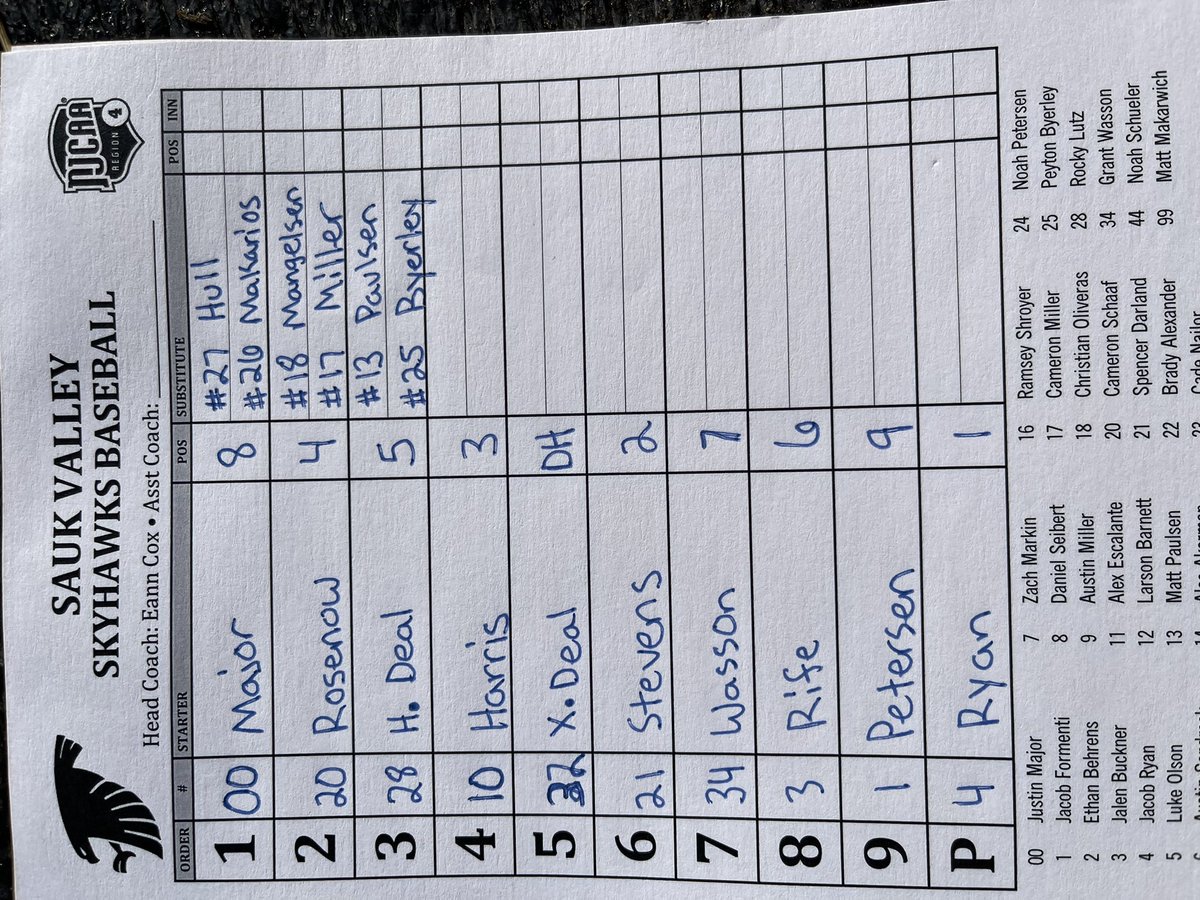 SAUK VALLEY
SKYHAWKS BASEBALL
NJCAA
REGION 4
Head Coach: Eann Cox • Asst Coach:
ORDER # STARTER POS SUBSTITUTE POS INN
1 00 Major 8 #27 Hull
#26 Makarios
2 20 Rosenow 4 #18 Mangelsen
#17 Miller
3 28 H. Deal 5 #13 Paulsen
#25 Byerley
4 10 Harris 3
5 32 X. Deal DH
6 21 Stevens 2
7 34 Wasson 7
8 3 Rife 6
9 1 Petersen 9
P 4 Ryan 1
00 Justin Major 7 Zach Markin 16 Ramsey Shroyer 24 Noah Petersen
1 Jacob Formenti 8 Daniel Seibert 17 Cameron Miller 25 Peyton Byerley
2 Ethan Behrens 9 Austin Miller 18 Christian Oliveras 28 Rocky Lutz
3 Jalen Buckner 11 Alex Escalante 20 Cameron Schaaf 34 Grant Wasson
4 Jacob Ryan 12 Larson Barnett 21 Spencer Darland 44 Noah Schueler
5 Luke Olson 13 Matt Paulsen 22 Brady Alexander 99 Matt Makarwich